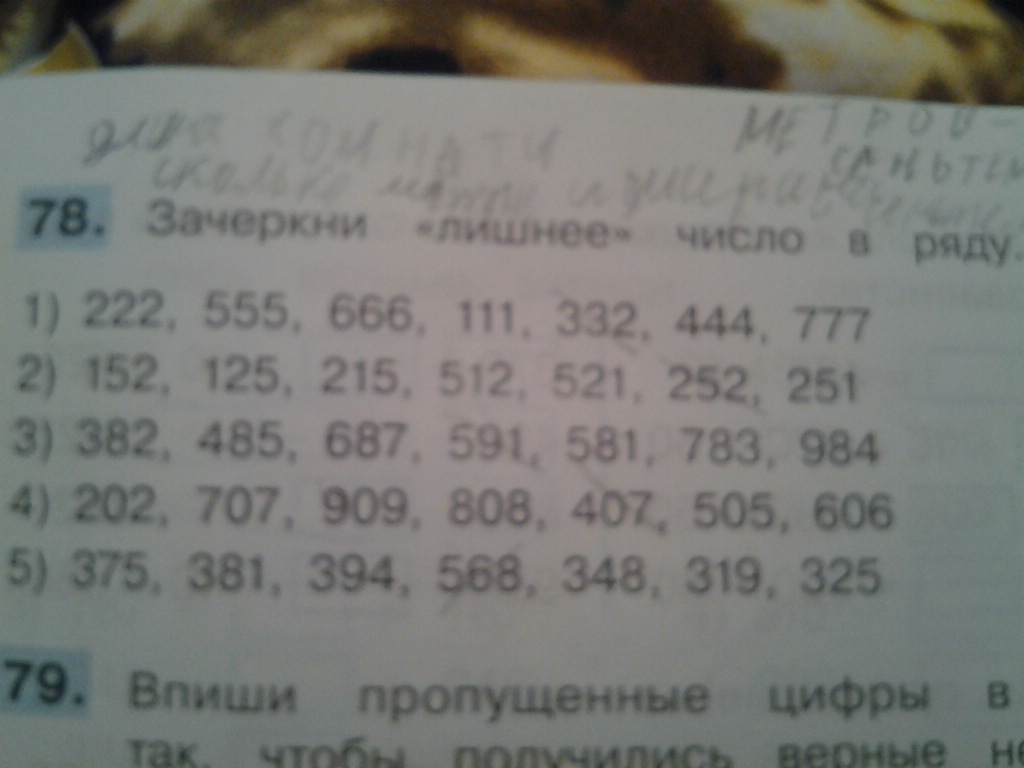 для комнаты
МЕТРОВ-
сколько метров и
78. Зачеркни «лишнее» число в ряду.
1) 222, 555, 666, 111, 332, 444, 777
2) 152, 125, 215, 512, 521, 252, 251
3) 382, 485, 687, 591, 581, 783, 984
4) 202, 707, 909, 808, 407, 505, 606
5) 375, 381, 394, 568, 348, 319, 325
79. Впиши пропущенные цифры в
так, чтобы получились верные не